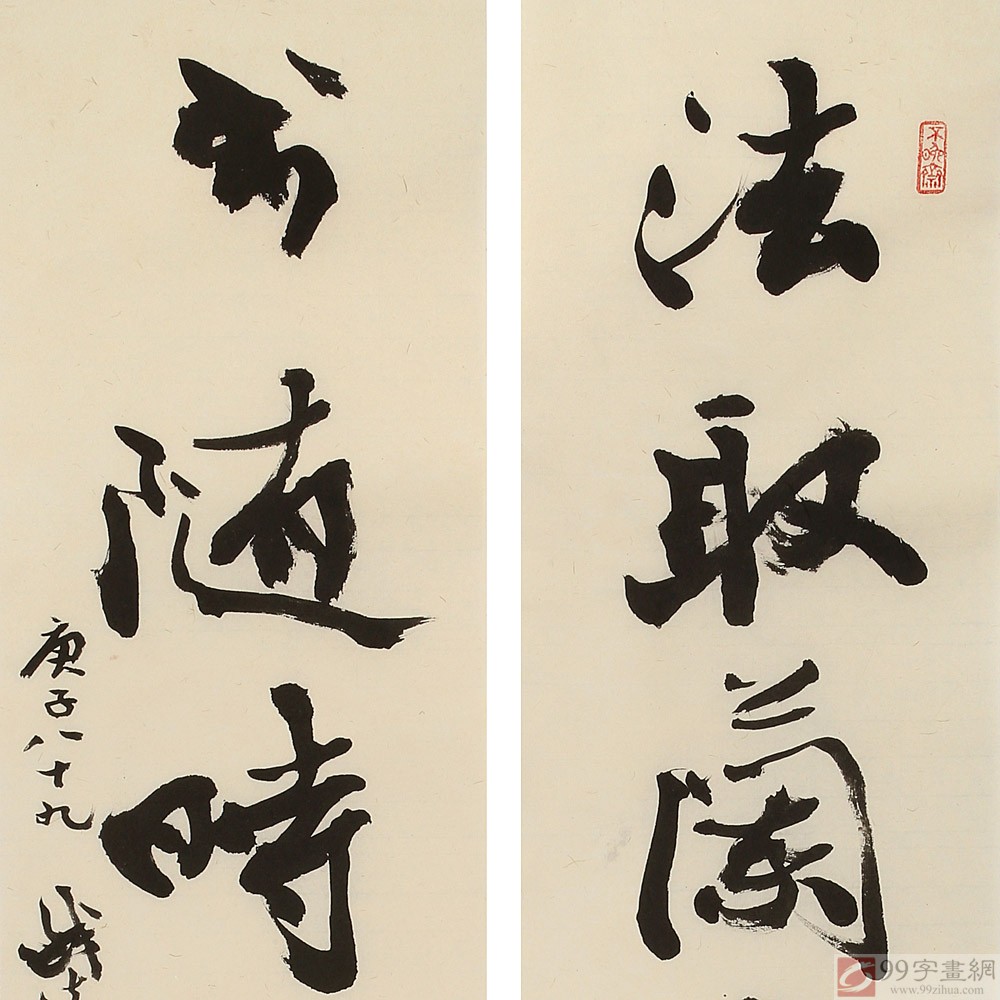 法取蘭
书随時
庚子八十九
99字畫網
www.99zihua.com